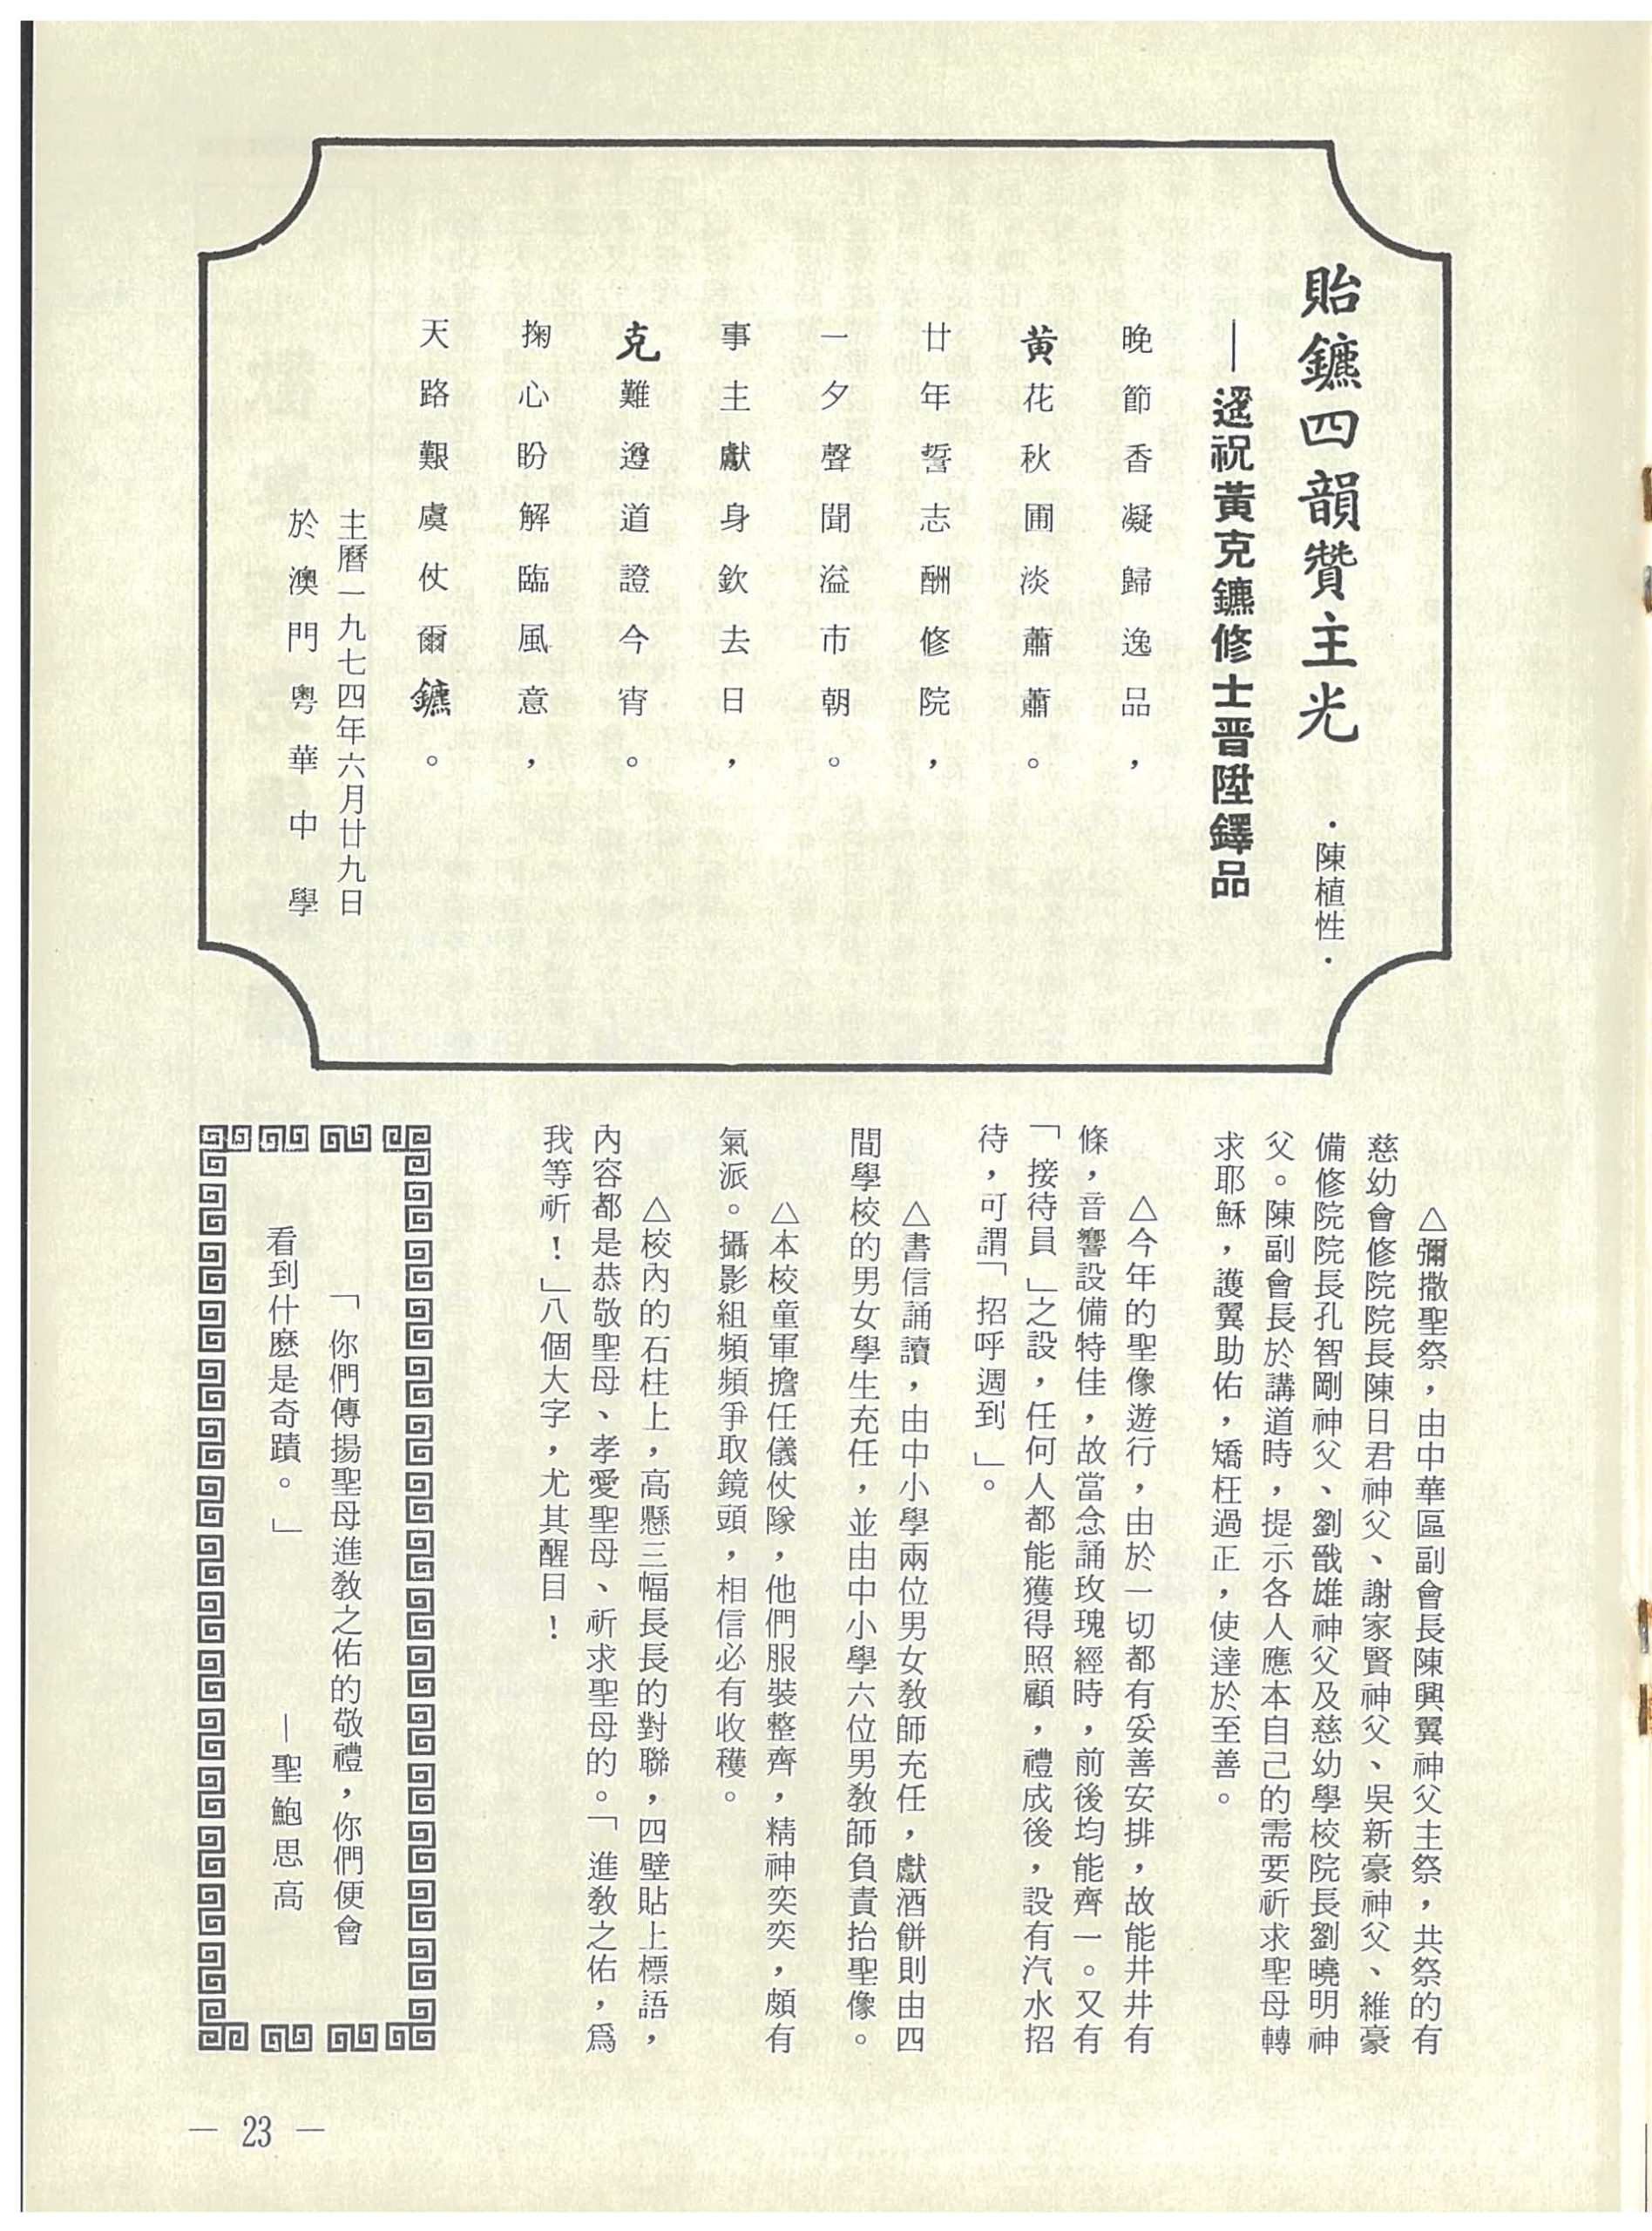 貽鑣四韻贊主光 ．陳植性．
—遥祝黃克鑣修士晋陞鐸品
晚節香凝歸逸品，
黃花秋圃淡蕭蕭。
廿年誓志酬修院，
一夕聲聞溢市朝。
事主獻身欽去日，
克難遵道證今宵。
掬心盼解臨風意，
天路艱虞仗爾鑣。
主曆一九七四年六月廿九日
於澳門粵華中學
△彌撒聖祭，由中華區副會長陳興翼神父主祭，共祭的有
慈幼會修院院長陳日君神父、謝家賢神父、吳新豪神父、維豪
備修院院長孔智剛神父、劉戩雄神父及慈幼學校院長劉曉明神
父。陳副會長於講道時，提示各人應本自己的需要祈求聖母轉
求耶穌，護翼助佑，矯枉過正，使達於至善。
△今年的聖像遊行，由於一切都有妥善安排，故能井井有
條，音響設備特佳，故當念誦玫瑰經時，前後均能齊一。又有
「接待員」之設，任何人都能獲得照顧，禮成後，設有汽水招
待，可謂「招呼週到」。
△書信誦讀，由中小學兩位男女敎師充任，獻酒餅則由四
間學校的男女學生充任，並由中小學六位男敎師負責抬聖像。
△本校童軍擔任儀仗隊，他們服裝整齊，精神奕奕，頗有
氣派。攝影組頻頻爭取鏡頭，相信必有收穫。
△校內的石柱上，高懸三幅長長的對聯，四壁貼上標語，
內容都是恭敬聖母、孝愛聖母、祈求聖母的。「進敎之佑，爲
我等祈！」八個大字，尤其醒目！
「你們傳揚聖母進敎之佑的敬禮，你們便會
看到什麽是奇蹟。」
—聖鮑思高
— 23 —